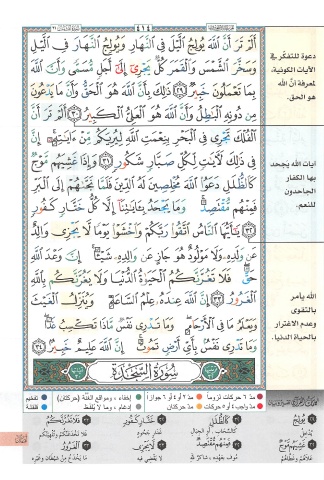 ٤١٤
أَلَمْ تَرَ أَنَّ ٱللَّهَ يُولِجُ ٱلَّيْلَ فِى ٱلنَّهَارِ وَيُولِجُ ٱلنَّهَارَ فِى ٱلَّيْلِ
وَسَخَّرَ ٱلشَّمْسَ وَٱلْقَمَرَ كُلٌّ يَجْرِىٓ إِلَىٰٓ أَجَلٍ مُّسَمًّى وَأَنَّ ٱللَّهَ
بِمَا تَعْمَلُونَ خَبِيرٌ ٢٩ ذَٰلِكَ بِأَنَّ ٱللَّهَ هُوَ ٱلْحَقُّ وَأَنَّ مَا يَدْعُونَ
مِن دُونِهِ ٱلْبَٰطِلُ وَأَنَّ ٱللَّهَ هُوَ ٱلْعَلِىُّ ٱلْكَبِيرُ ٣٠ أَلَمْ تَرَ أَنَّ
ٱلْفُلْكَ تَجْرِى فِى ٱلْبَحْرِ بِنِعْمَتِ ٱللَّهِ لِيُرِيَكُم مِّنْ ءَايَٰتِهِۦٓ ۚ إِنَّ
فِى ذَٰلِكَ لَءَايَٰتٍ لِّكُلِّ صَبَّارٍ شَكُورٍ ٣١ وَإِذَا غَشِيَهُم مَّوْجٌ
كَٱلظُّلَلِ دَعَوُا۟ ٱللَّهَ مُخْلِصِينَ لَهُ ٱلدِّينَ فَلَمَّا نَجَّىٰهُمْ إِلَى ٱلْبَرِّ
فَمِنْهُم مُّقْتَصِدٌ ۚ وَمَا يَجْحَدُ بِـَٔايَٰتِنَآ إِلَّا كُلُّ خَتَّارٍ كَفُورٍ
٣٢ يَٰٓأَيُّهَا ٱلنَّاسُ ٱتَّقُوا۟ رَبَّكُمْ وَٱخْشَوْا۟ يَوْمًا لَّا يَجْزِى وَالِدٌ
عَن وَلَدِهِۦ وَلَا مَوْلُودٌ هُوَ جَازٍ عَن وَالِدِهِۦ شَيْـًٔا ۚ إِنَّ وَعْدَ ٱللَّهِ
حَقٌّ ۖ فَلَا تَغُرَّنَّكُمُ ٱلْحَيَوٰةُ ٱلدُّنْيَا وَلَا يَغُرَّنَّكُم بِٱللَّهِ
ٱلْغَرُورُ ٣٣ إِنَّ ٱللَّهَ عِندَهُۥ عِلْمُ ٱلسَّاعَةِ وَيُنَزِّلُ ٱلْغَيْثَ
وَيَعْلَمُ مَا فِى ٱلْأَرْحَامِ ۖ وَمَا تَدْرِى نَفْسٌ مَّاذَا تَكْسِبُ غَدًا ۖ
وَمَا تَدْرِى نَفْسٌۢ بِأَىِّ أَرْضٍ تَمُوتُ ۚ إِنَّ ٱللَّهَ عَلِيمٌ خَبِيرٌۢ ٣٤
سُورَةُ السَّجْدَةِ
دعوة للتفكّر في
الآيات الكونية،
لمعرفة أنّ الله
هو الحق.
آيات الله يجحد
بها الكفار
الجاحدون
للنعم.
الله يأمر
بالتقوى
وعدم الاغترار
بالحياة الدنيا.
مدّ ٦ حركات لزوماً
مدّ ٢ أو ٤ أو ٦ جوازاً
إخفاء، ومواقع الغُنَّة (حركتان)
تفخيم
مدّ حركتان
إدغام، وما لا يُلفَظ
قلقلة